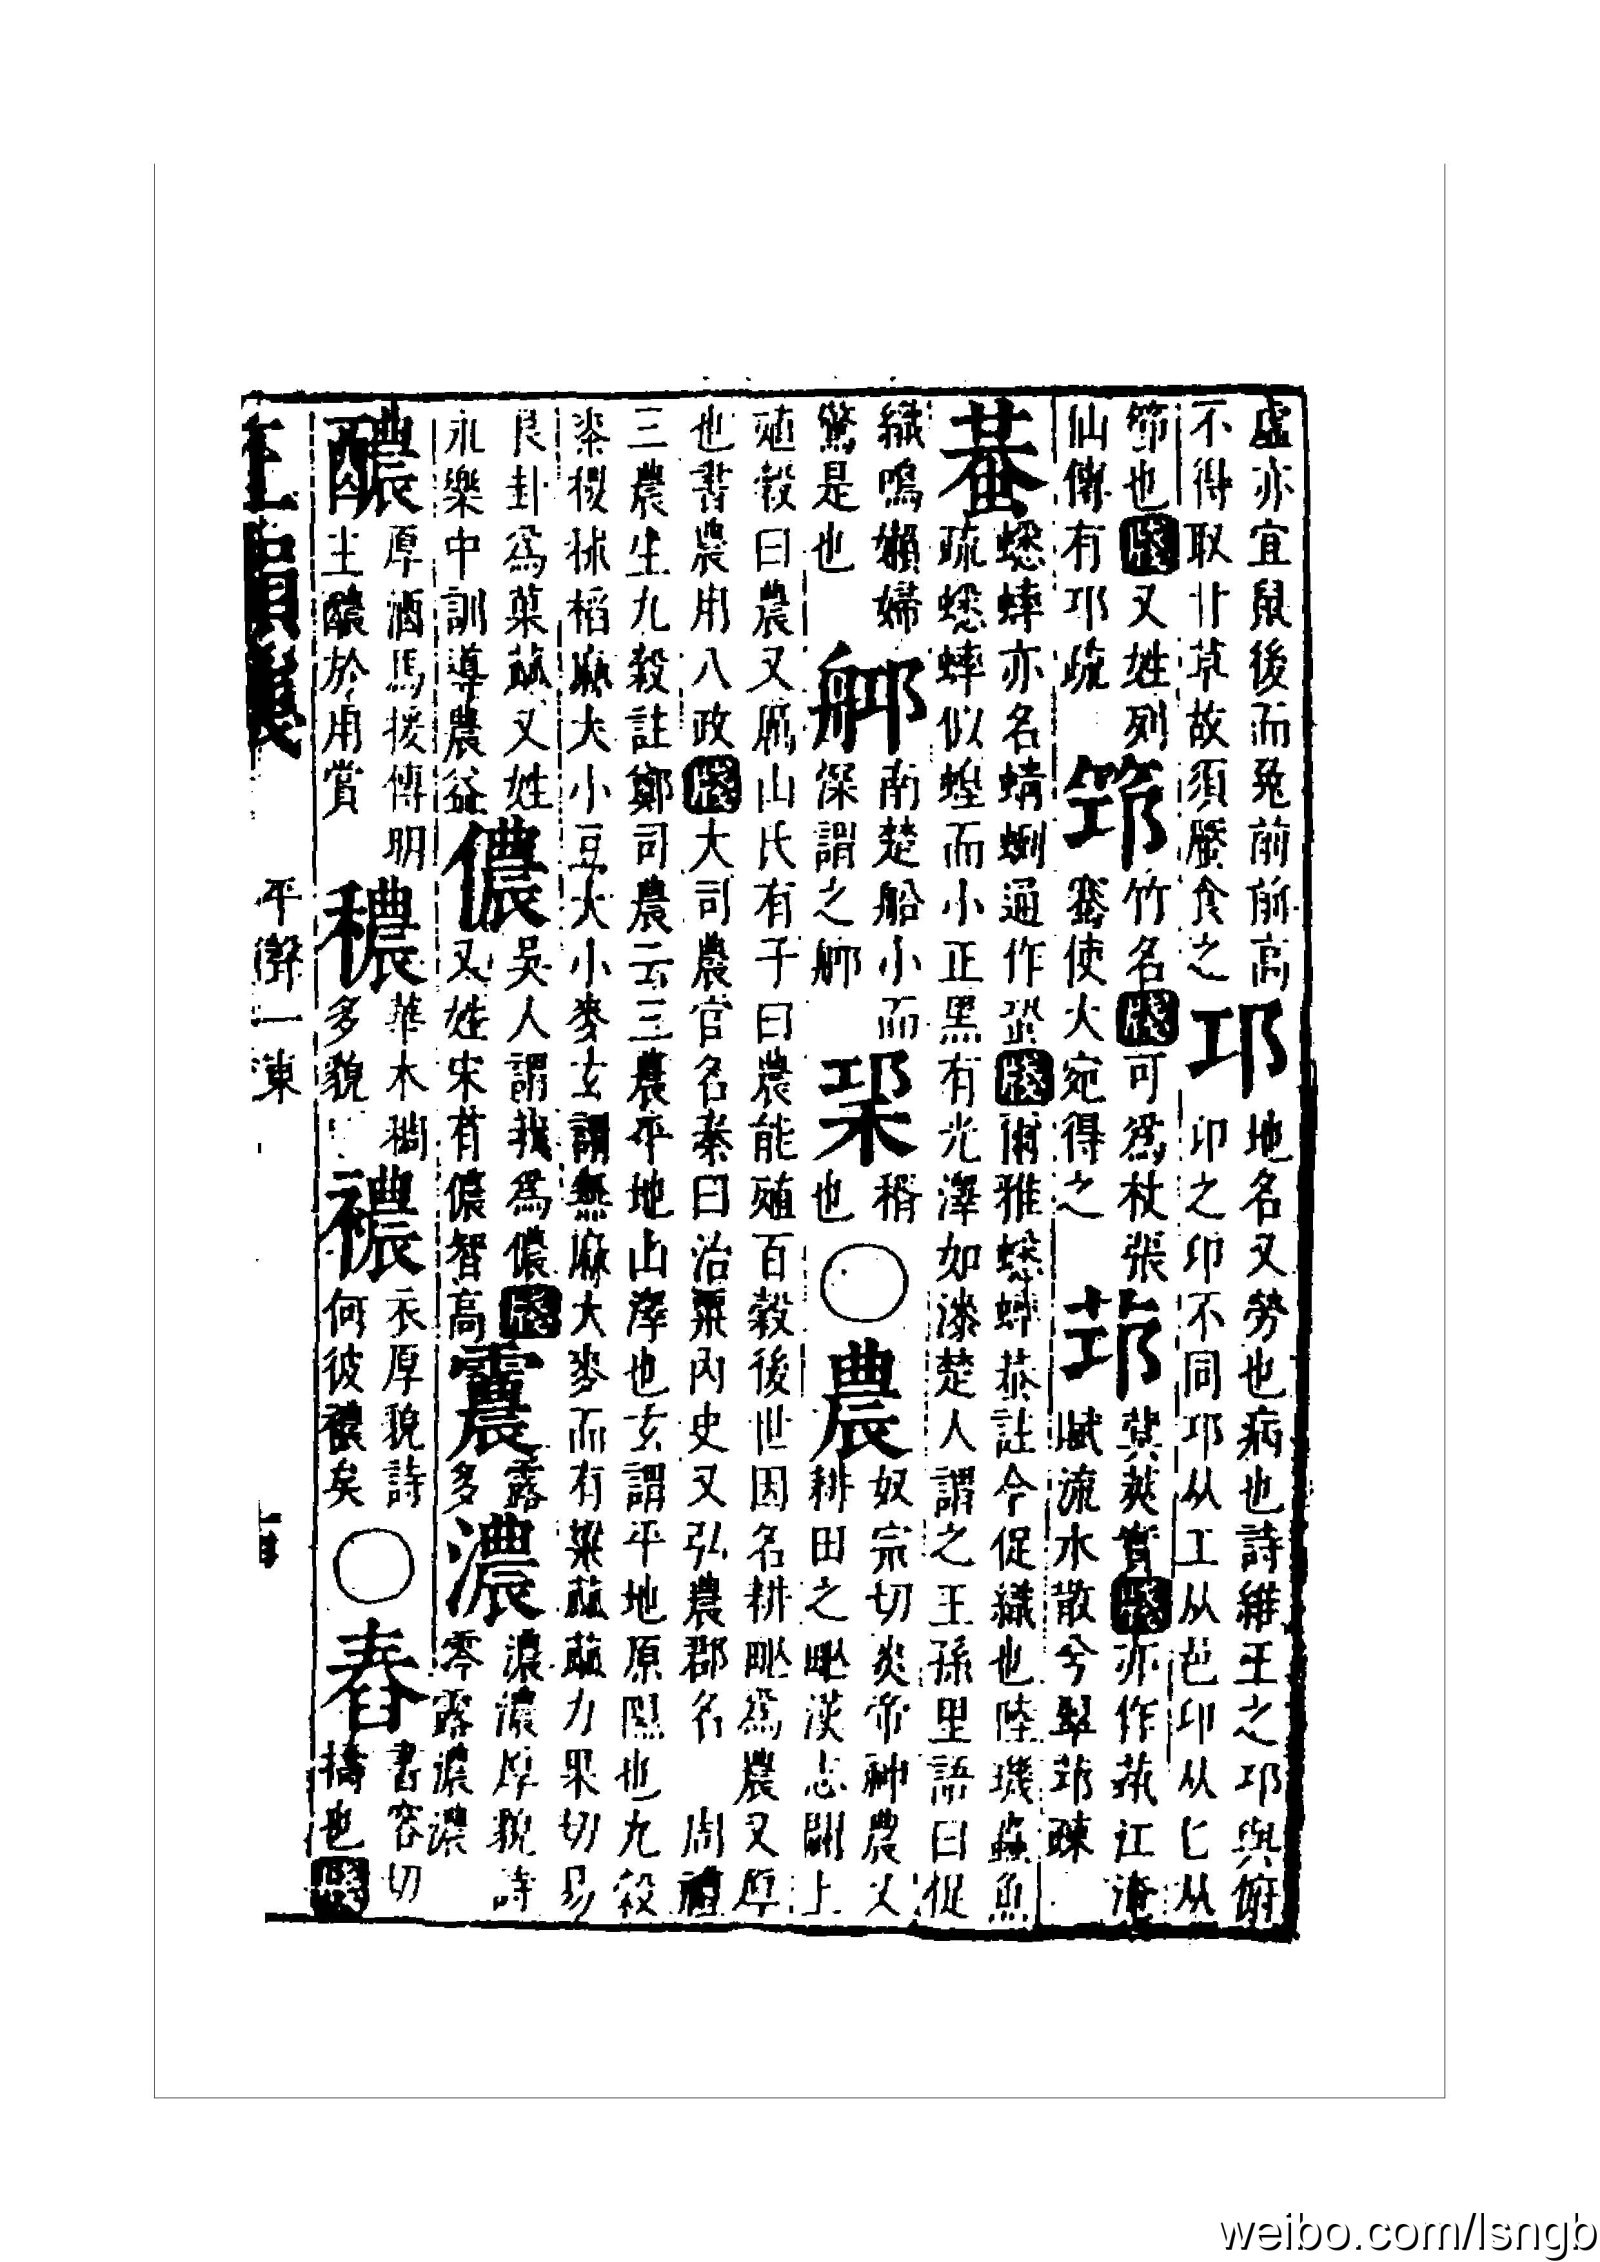 虛亦宜鼠後而兎前前高
不得取甘草故須蟨食之
卭
地名又勞也病也詩維王之卭與俯
卬之卬不同卭从工从邑卬从匕从
節也
又姓列
仙傳有卭疏
筇
竹名
可為杖張
騫使大宛得之
䓖
蓂莢實
亦作
江淹
賦流水散兮翠
疎
蛬
蟋蟀亦名蜻蛚通作蛩
爾雅蟋蟀蛬註今促織也陸璣蟲魚
疏蟋蟀似蝗而小正黑有光澤如漆楚人謂之王孫里語曰促
織鳴嬾婦
驚是也
南楚船小而
深謂之
稍
也
農
奴宗切炎帝神農又
耕田之甿漢志闢上
殖穀曰農又厲山氏有子曰農能殖百穀後世因名耕甿為農又厚
也書農用八政
大司農官名秦曰治粟內史又弘農郡名
周禮
三農生九穀註鄭司農云三農平地山澤也玄謂平地原隰也九穀
黍稷秫稻麻大小豆大小麥玄謂無麻大麥而有粱苽苽力果切易
艮卦為菓蓏又姓
永樂中訓導農益
儂
吳人謂我為儂
又姓宋有儂智高
震
露
多
濃
濃濃厚貌詩
零露濃濃
醲
厚酒馬援傳明
主醲於用賞
穠
華木稠
多貌
襛
衣厚貌詩
何彼襛矣
舂
書容切
擣也
正韻
平聲一東